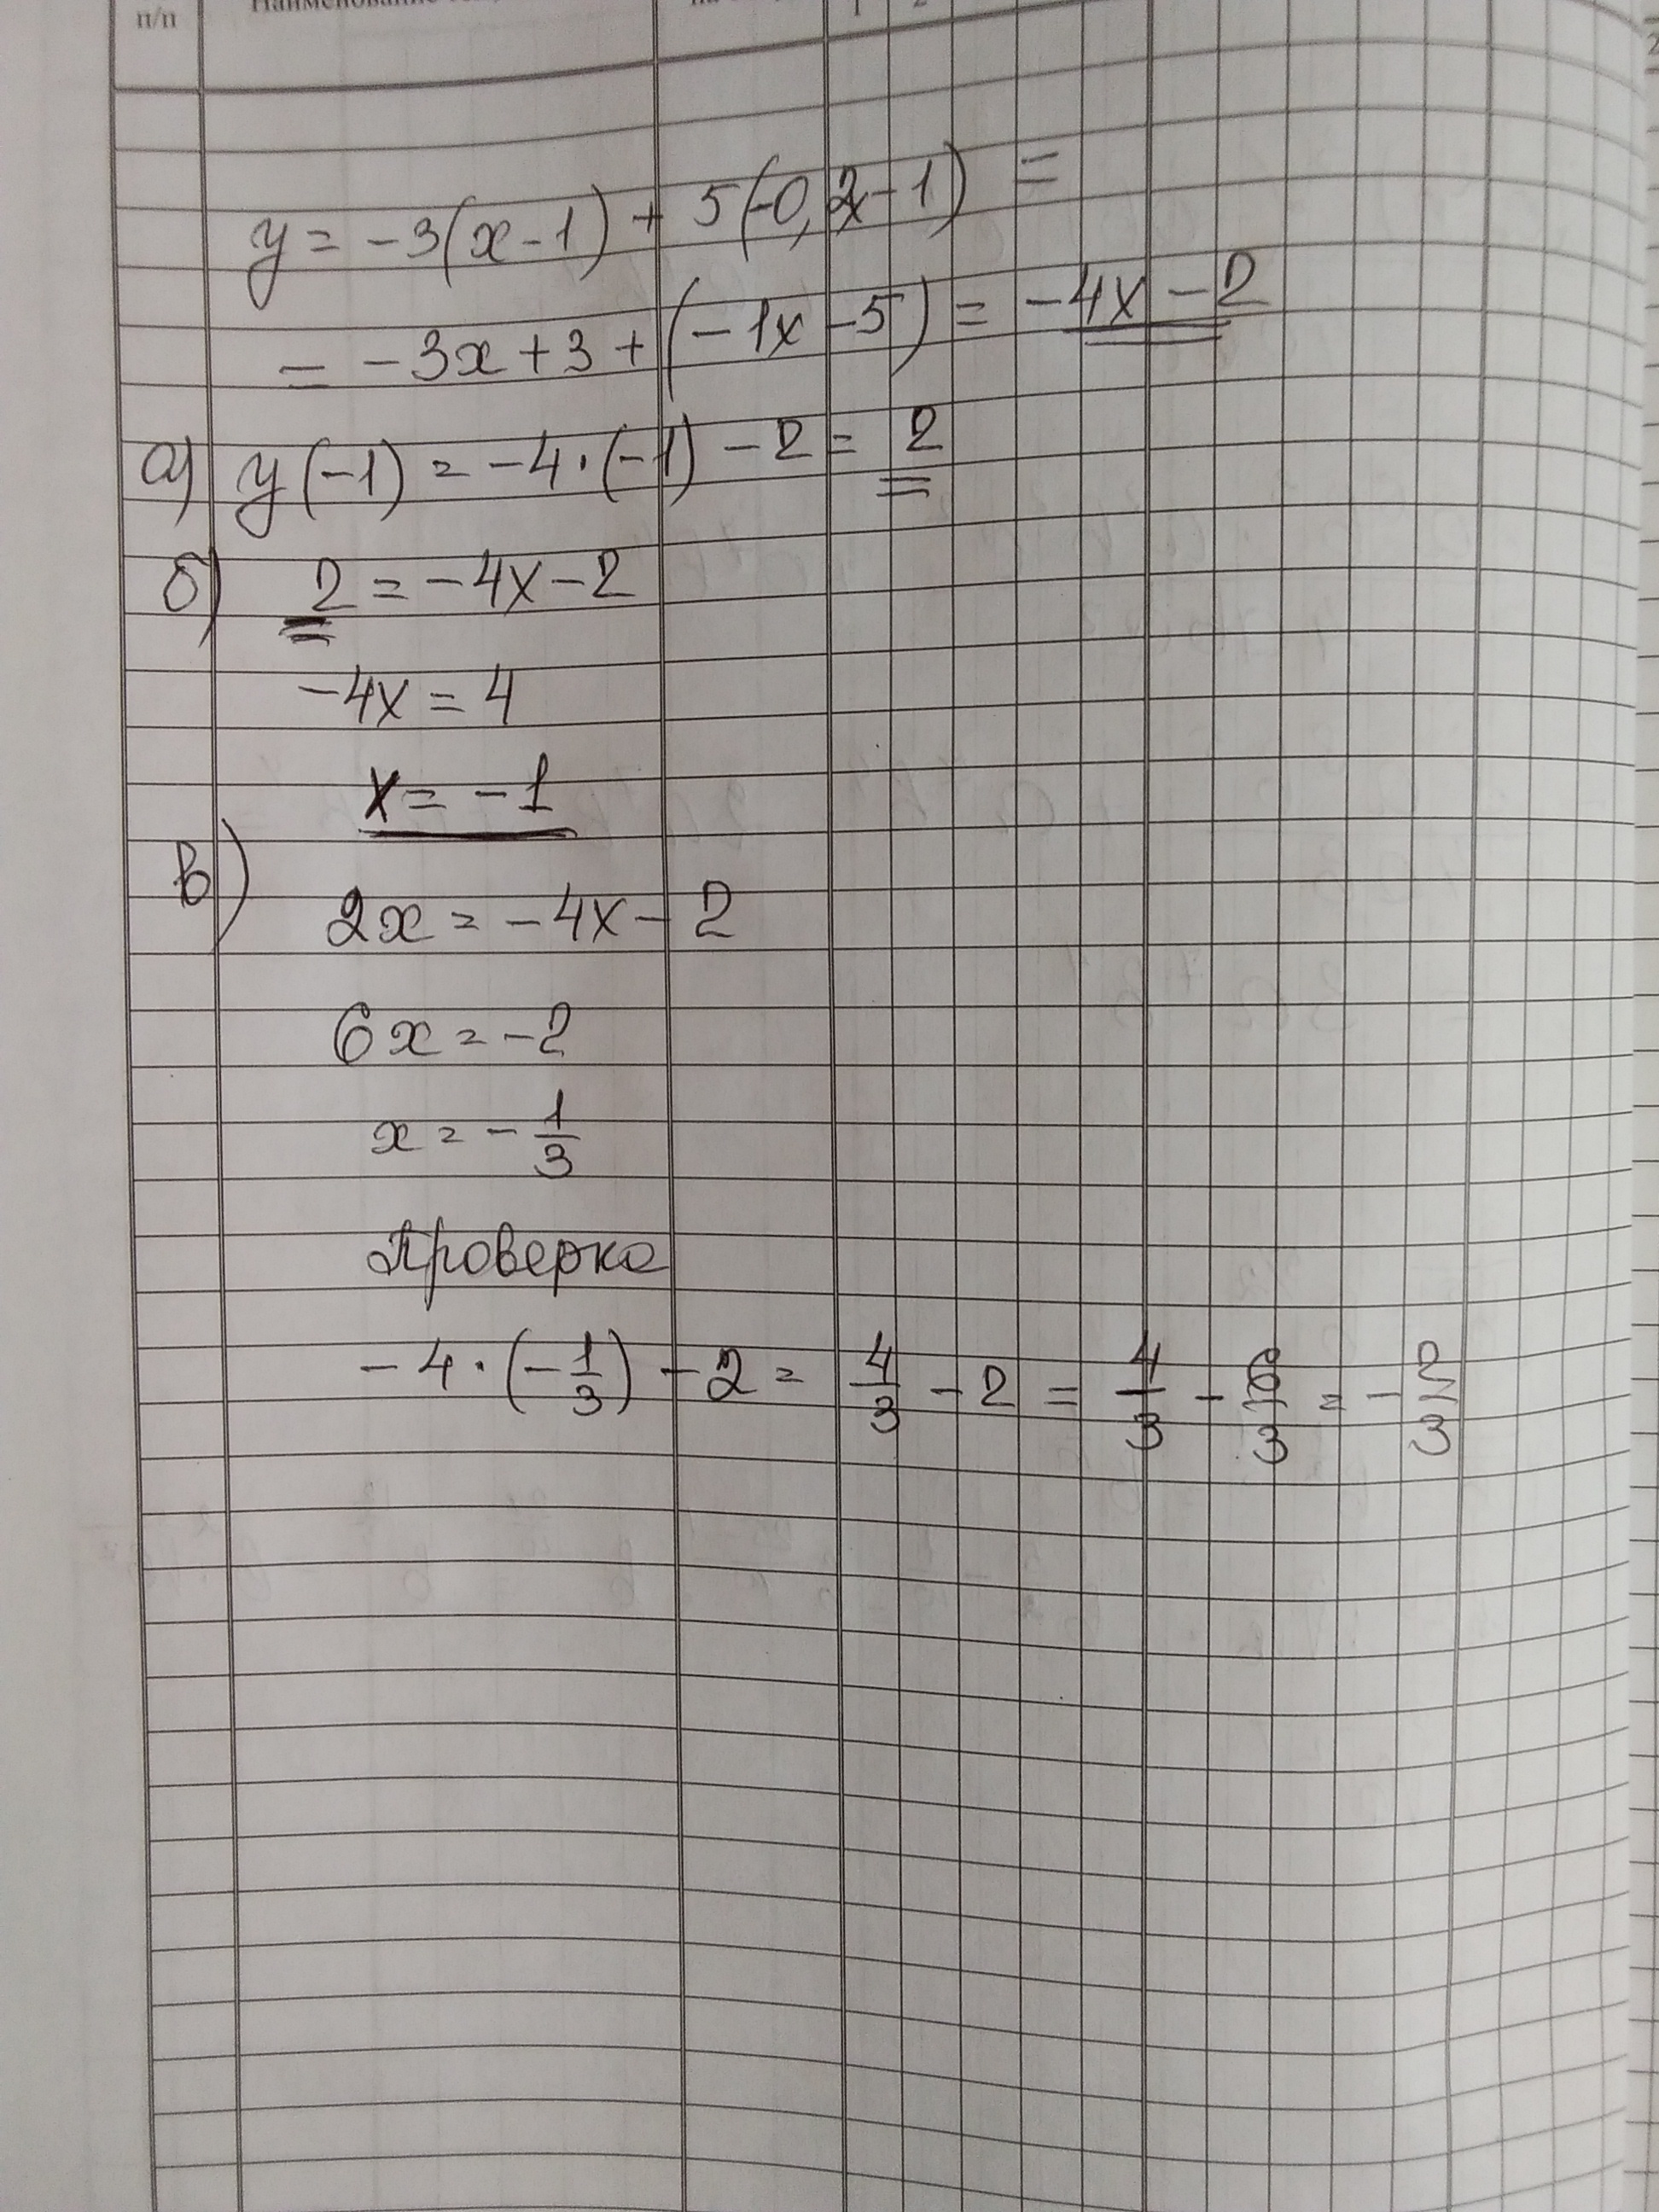 п/п
y = -3(x-1) + 5(-0,2x-1) =
= -3x+3+(-1x-5) = -4x-2
а) y(-1) = -4·(-1) -2 = 2
б) 2 = -4x-2
-4x = 4
x = -1
в)
2x = -4x-2
6x = -2
x = -1/3
Проверка
-4·(-1/3) -2 = 4/3 -2 = 4/3 - 6/3 = -2/3